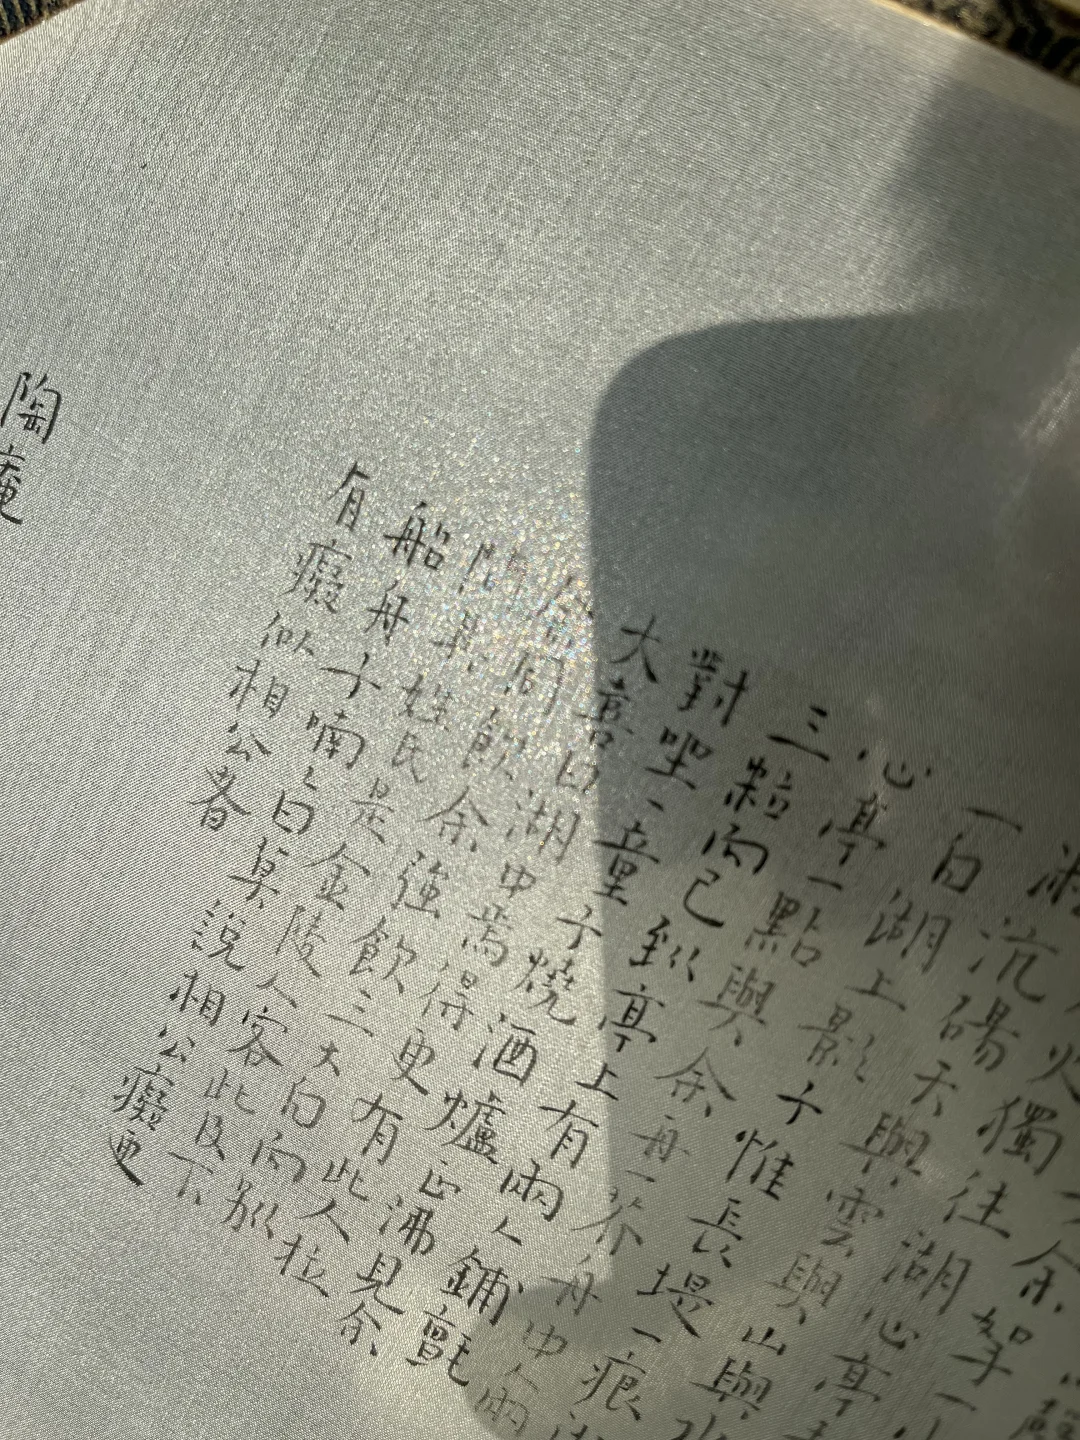 沆碭天與雲與山與水
一白湖上影子惟長堤一痕
心亭一點與余舟一芥舟中人兩
三粒而已到亭上有兩人鋪氈
對坐一童子燒酒爐正沸見余
大喜曰湖中焉得更有此人拉
余同飲余強飲三大白而別
問其姓氏是金陵人客此及下
船舟子喃喃曰莫說相公癡更
有癡似相公者
陶庵
火獨往湖心亭
余拏一小